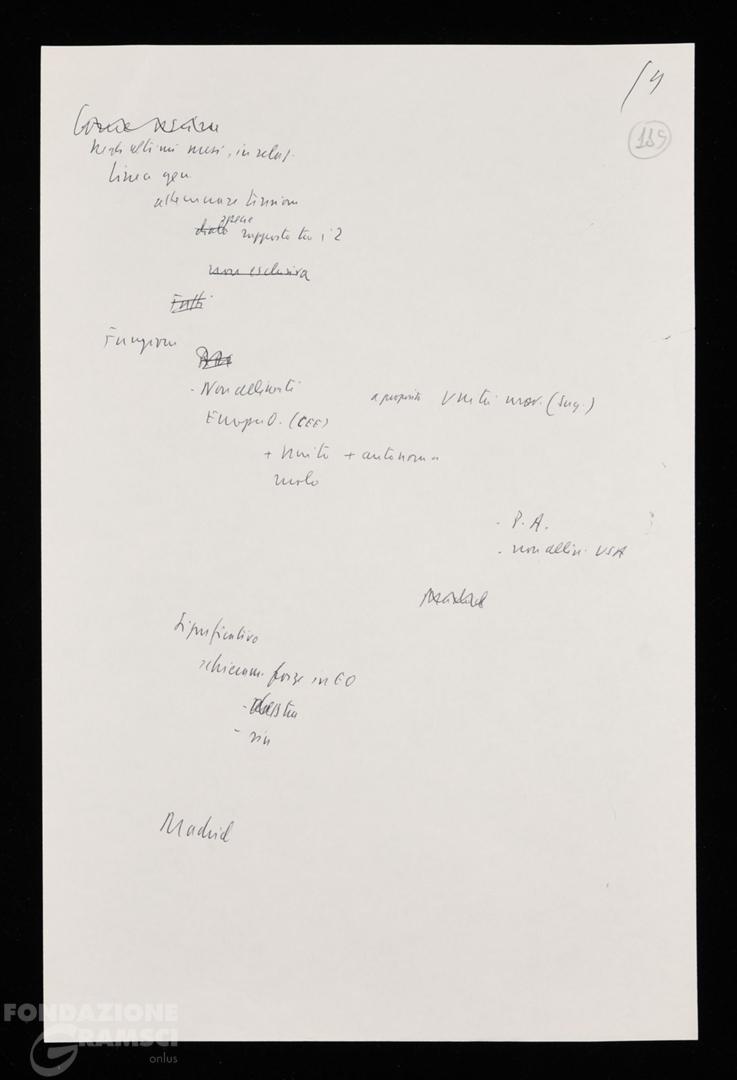 14
185
negli ultimi mesi, in relaz.
linea gen
attenuare tensioni
specie
rapporto tra i 2
non esclusiva
Tutti
Funzioni
- Non allineati a proposito Unità mov. (Sug.)
Europa O. (CEE)
+ unita + autonoma
ruolo
- P.A.
- non allin. USA
Madrid
Significativo
schieram. forze in EO
- destra
- sin
Madrid
FONDAZIONE
GRAMSCI
onlus